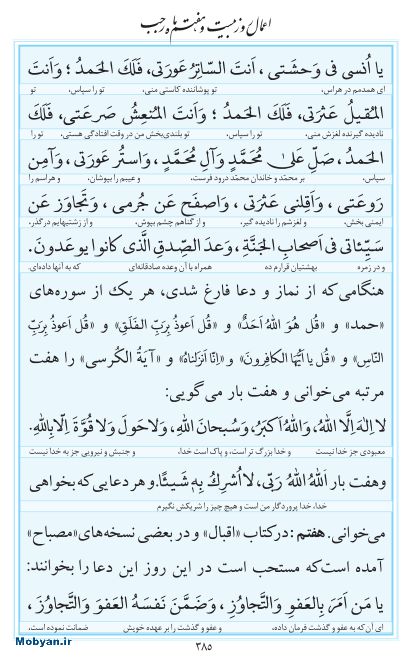 اعمال روز بیست و هفتم ماه رجب
یا اُنسی فی وَحشَتی ، اَنتَ السّاتِرُ عَورَتی، فَلَكَ الحَمدُ ؛ وَاَنتَ
ای همدمم در هراس، تو پوشاننده کاستی منی، تو را سپاس، تو
المُقیلُ عَثرَتی، فَلَكَ الحَمدُ ؛ وَاَنتَ المُنعِشُ صَرعَتی، فَلَكَ
نادیده گیرنده لغزش منی، تو را سپاس، تو بلندی‌بخش من در وقت افتادگی هستی، تو را
الحَمدُ، صَلِّ عَلیٰ مُحَمَّدٍ وَآلِ مُحَمَّدٍ، وَاستُر عَورَتی، وَآمِن
سپاس، بر محمّد و خاندان محمّد درود فرست، و عیبم را بپوشان، و هراسم را
رَوعَتی ، وَاَقِلنی عَثرَتی ، وَاصفَح عَن جُرمی ، وَتَجاوَز عَن
ایمنی بخش، و لغزشم را نادیده گیر، و از گناهم چشم بپوش، و از زشتیهایم درگذر،
سَیِّئاتی فی اَصحابِ الجَنَّةِ ، وَعدَ الصِّدقِ الَّذی کانوا یوعَدونَ.
و در زمره بهشتیان قرارم ده همراه با آن وعده صادقانه‌ای که به آنها داده‌ای.
هنگامی‌که از نماز و دعا فارغ شدی، هر یک از سوره‌های
«حمد» و «قُل هُوَ اللهُ اَحَدٌ» و «قُل اَعوذُ بِرَبِّ الفَلَقِ» و «قُل اَعوذُ بِرَبِّ
النّاسِ» و «قُل یا اَیُّهَا الکافِرونَ» و «اِنّا اَنزَلناهُ» و «آیَةُ الکُرسی» را هفت
مرتبه می‌خوانی و هفت بار می‌گویی:
لا اِلٰهَ اِلَّا اللهُ، وَاللهُ اَکبَرُ، وَسُبحانَ اللهِ، وَلا حَولَ وَلا قُوَّةَ اِلّا بِاللهِ.
معبودی جز خدا نیست و خدا بزرگ تر است، و پاک است خدا، و جنبش و نیرویی جز به خدا نیست
و هفت بار اَللهُ اللهُ رَبّی، لا اُشرِكُ بِهٖ شَیئًا. و هر دعایی که بخواهی
خدا، خدا پروردگار من است و هیچ چیز را شریکش نگیرم
می‌خوانی. هفتم : در کتاب «اقبال» و در بعضی نسخه‌های «مصباح»
آمده است‌که مستحب است در این روز این دعا را بخوانند:
یا مَن اَمَرَ بِالعَفوِ وَالتَّجاوُزِ ، وَضَمَّنَ نَفسَهُ العَفوَ وَالتَّجاوُزَ ،
ای آن‌که به عفو و گذشت فرمان داده، و عفو و گذشت را بر عهده خویش ضمانت نموده است،
۳۸۵
Mobyan.ir